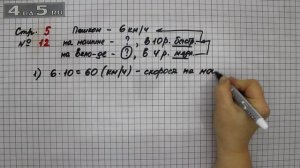 4apa5.ru
Стр. 5 Пешком - 6 км/ч
№ 12 на машине - ?, в 10 р. быстр.
на вело-де - ?, в 4 р. медл.
1) 6 · 10 = 60 (км/ч) - скорость на ма